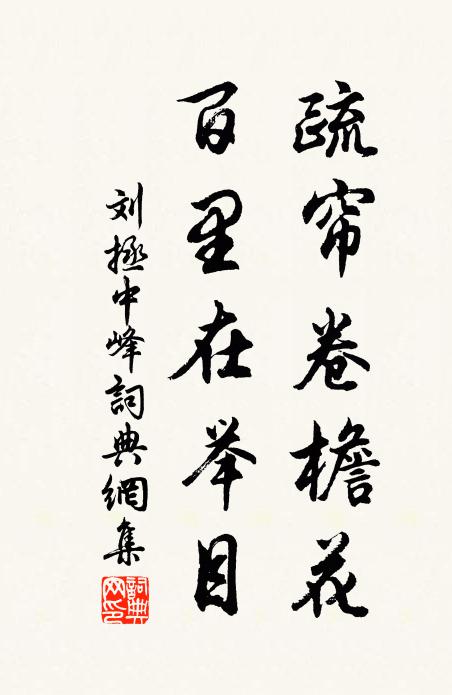 疏帘卷檐花
百里在举目
刘拯中峰詞典網集
詞典网印